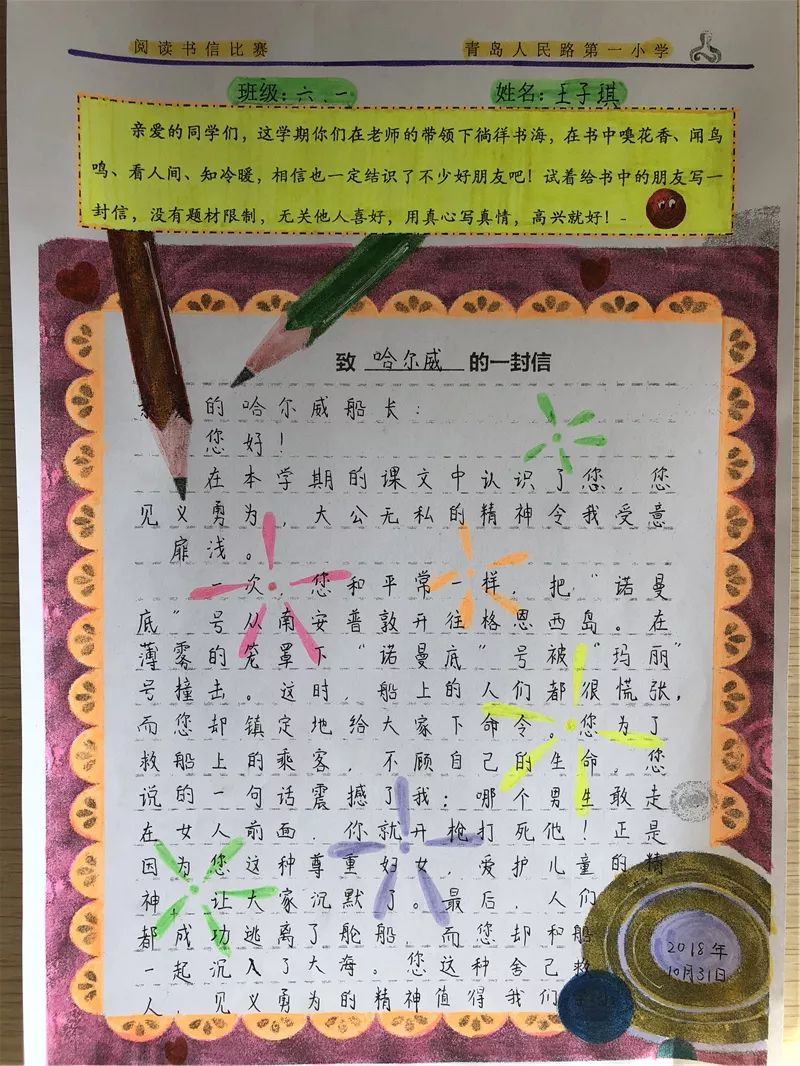 阅读书信比赛 青岛人民路第一小学
班级：六、一 姓名：王子琪
亲爱的同学们，这学期你们在老师的带领下徜徉书海，在书中嗅花香、闻鸟
鸣、看人间、知冷暖，相信也一定结识了不少好朋友吧！试着给书中的朋友写一
封信，没有题材限制，无关他人喜好，用真心写真情，高兴就好！-
致 哈尔威 的一封信
的哈尔威船长：
您好！
在本学期的课文中认识了您，您
见义勇为，大公无私的精神令我受意
扉浅。
一次，您和平常一样，把“诺曼
底”号从南安普敦开往格恩西岛。在
薄雾的笼罩下“诺曼底”号被“玛丽”
号撞击。这时，船上的人们都很慌张，
而您却镇定地给大家下命令。您为了
救船上的乘客，不顾自己的生命。您
说的一句话震撼了我：哪个男生敢走
在女人前面，你就开枪打死他！正是
因为您这种尊重妇女，爱护儿童的精
神，让大家沉默了。最后，人们
都成功逃离了舱船，而您却和船
一起沉入了大海。您这种舍己救
人，见义勇为的精神值得我们
2018年
10月31日